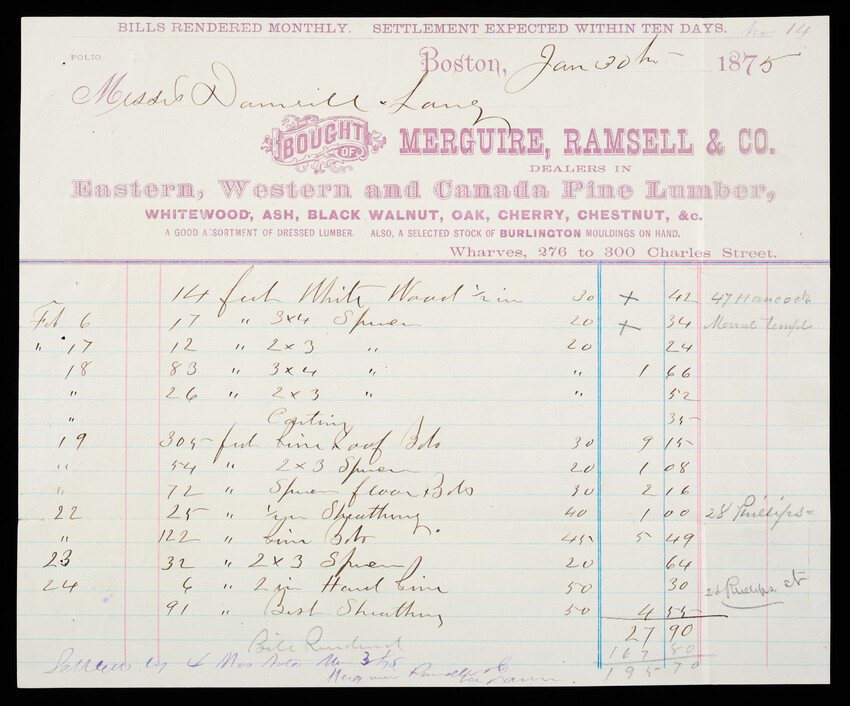 BILLS RENDERED MONTHLY. SETTLEMENT EXPECTED WITHIN TEN DAYS. No. 14
FOLIO
Boston, Jan 30th 1875
Messrs & Lang
BOUGHT OF MERGUIRE, RAMSELL & CO.
DEALERS IN
Eastern, Western and Canada Pine Lumber,
WHITEWOOD, ASH, BLACK WALNUT, OAK, CHERRY, CHESTNUT, &c.
A GOOD ASSORTMENT OF DRESSED LUMBER. ALSO, A SELECTED STOCK OF BURLINGTON MOULDINGS ON HAND.
Wharves, 276 to 300 Charles Street.
14 feet White Wood 1/2 in 30 + 42 47 Hancock
Feb 6 17 " 3x4 Spruce 20 + 34 Templ
" 17 12 " 2x3 " 20 24
18 83 " 3x4 " " 1 66
" 26 " 2x3 " " 52
" 35
19 305 feet Pine Roof Bds 30 9 15
" 54 " 2x3 Spruce 20 1 08
" 72 " Spruce floor Bds 30 2 16
22 25 " Sheathing 40 1 00 28 Phillips =
" 122 " Pine Bds 45 5 49
23 32 " 2x3 Spruce 20 64
24 6 " 2 in Hard Pine 50 30 28 Phillips st
91 " Best Sheathing 50 4 55
27 90
Bill Rendered 167 80
Settled by 4 Mos Note 3/75 195 70
Merguire Ramsell & Co